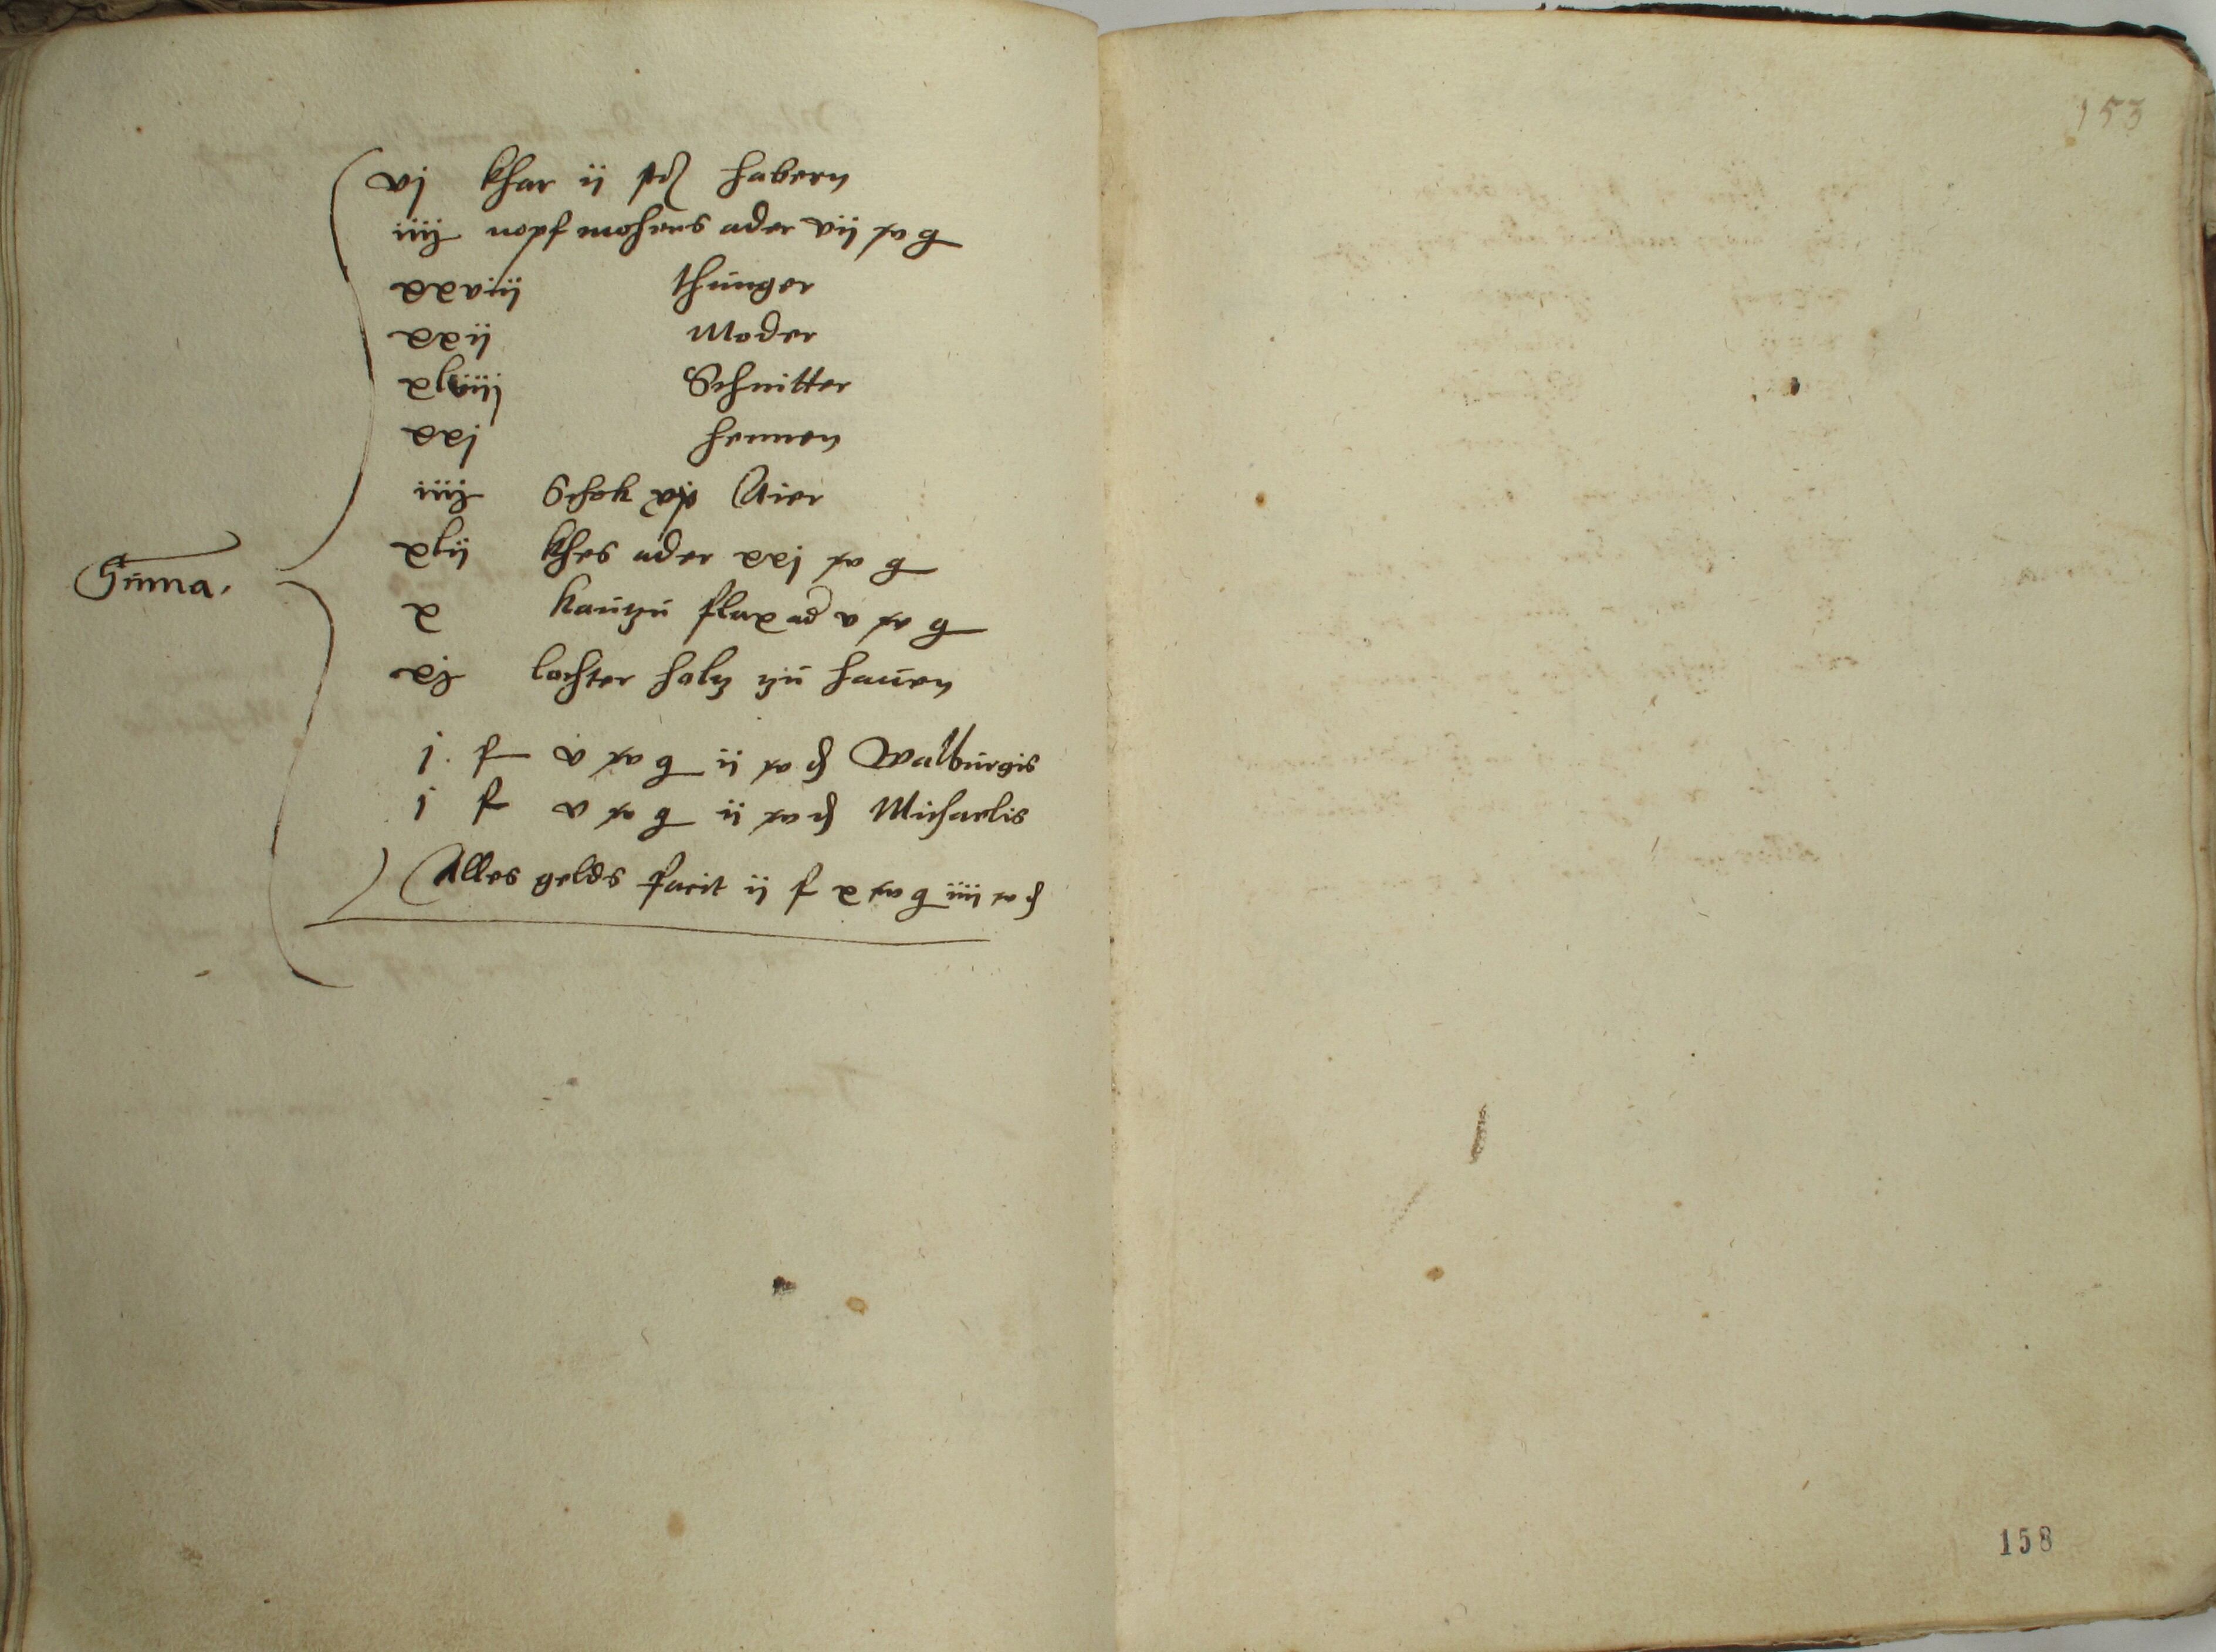 Suma.
vj khar ij habern
iiij nopf mohens ader vij
xxviij thunger
xxij Meder
xlviij Schnitter
xxj hennen
iiij Schok Aier
xlij khes ader xxj
x kautzn flax v
xj lachter holtz zu hauen
j f v g ij Walburgis
j f v g ij Michaelis
Alles gelds facit ij f x g iiij
153
158